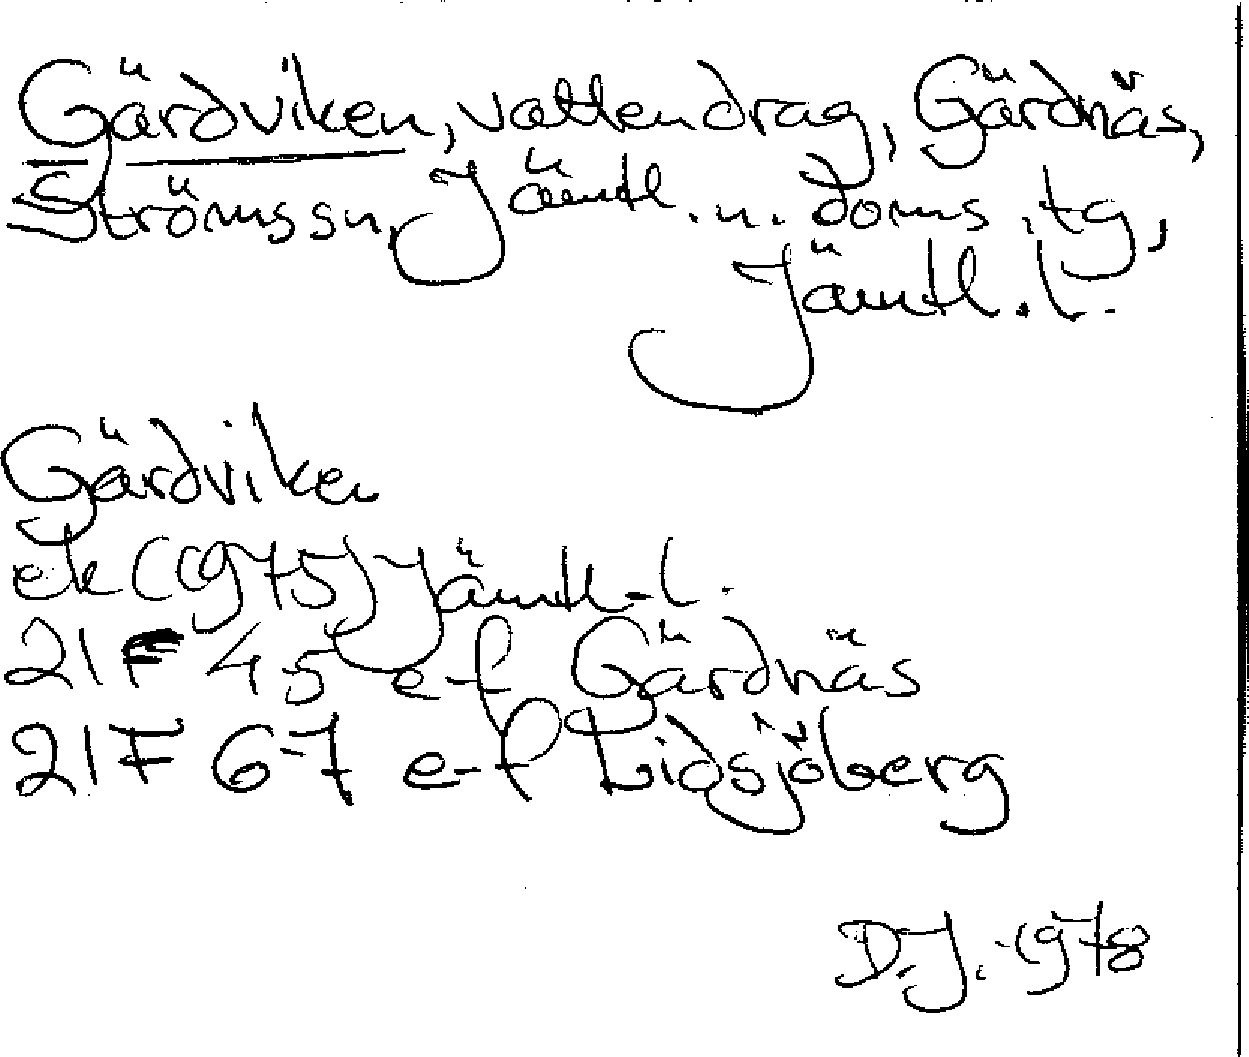 Gärdviken, vattendrag, Gärdnäs,
Ströms sn, Jämtl. n. doms. tg,
Jämtl. l.
Gärdviken
ek (1975) Jämtl. l.
21F 4-5 e-f Gärdnäs
21F 6-7 e-f Lidsjöberg
D.J. 1978